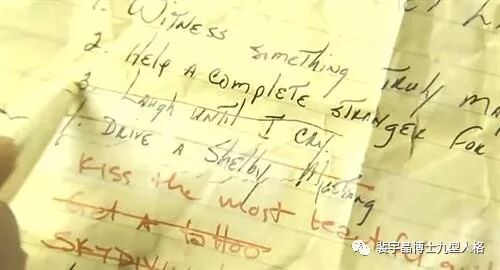 ET LI
1. WITNESS SOMETHING TRULY MA
2. HELP A COMPLETE STRANGER FOR
3. LAUGH UNTIL I CRY
4. DRIVE A SHELBY MUSTANG
KISS THE MOST
GET A TATTOO
SKYDIVI
裴宇晶博士九型人格